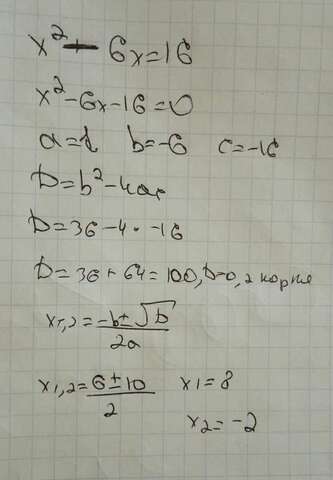 x² - 6x = 16
x² - 6x - 16 = 0
a = 1 b = -6 c = -16
D = b² - 4ac
D = 36 - 4 · -16
D = 36 + 64 = 100, D>0, 2 корня
x₁,₂ = -b ± √D / 2a
x₁,₂ = 6 ± 10 / 2 x₁ = 8
x₂ = -2